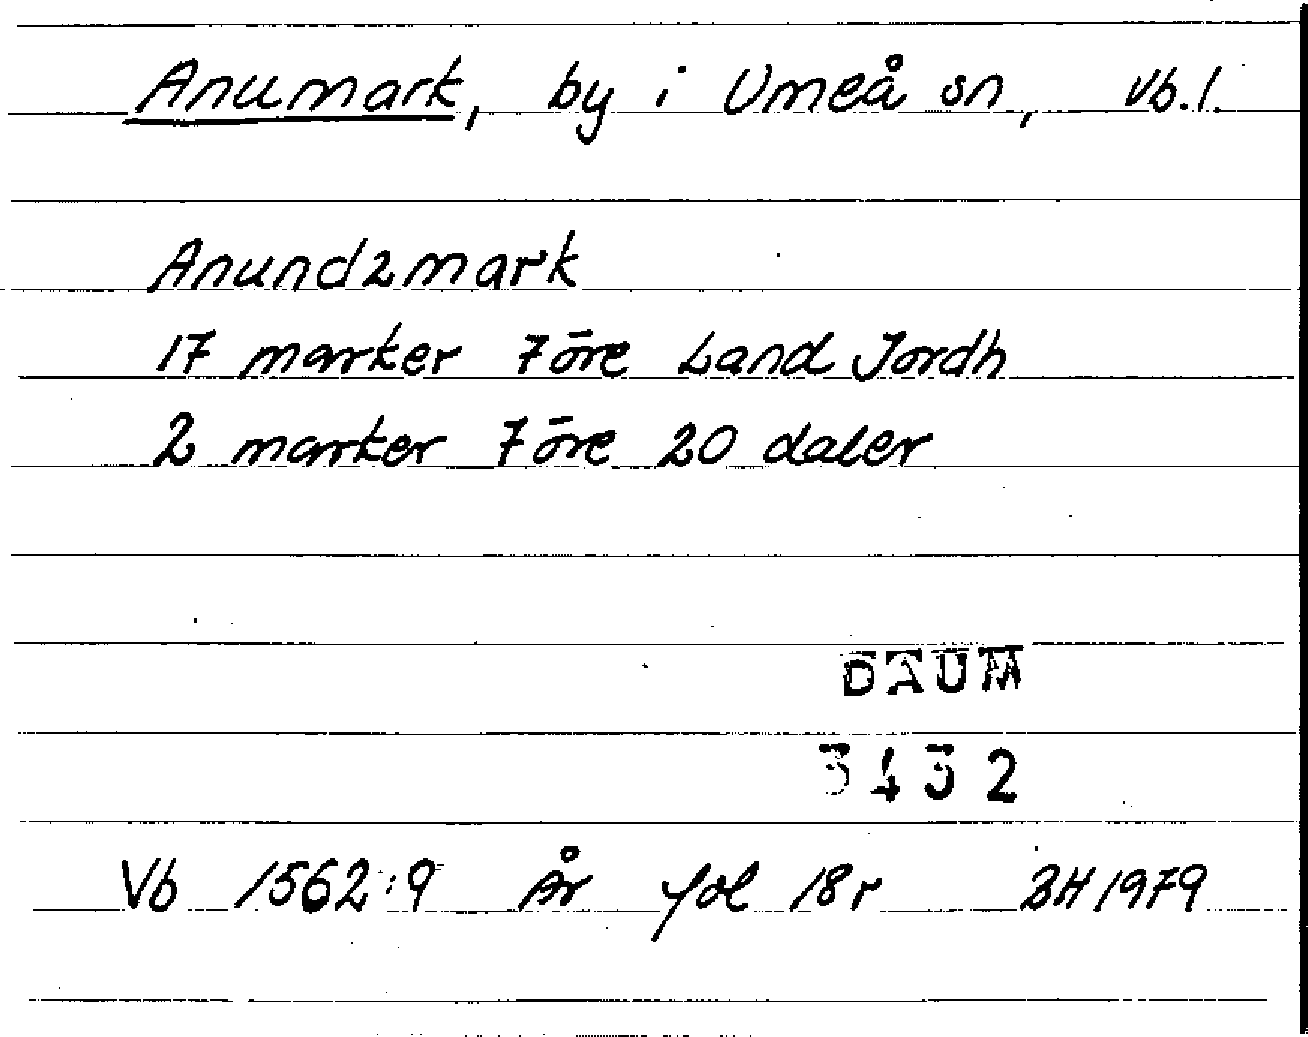 Anumark, by i Umeå sn, Vb.l.
Anundzmark
17 marker 7 öre Land Jordh
2 marker 7 öre 20 daler
DAUM
3432
Vb 1562:9 År fol 18r BH 1979